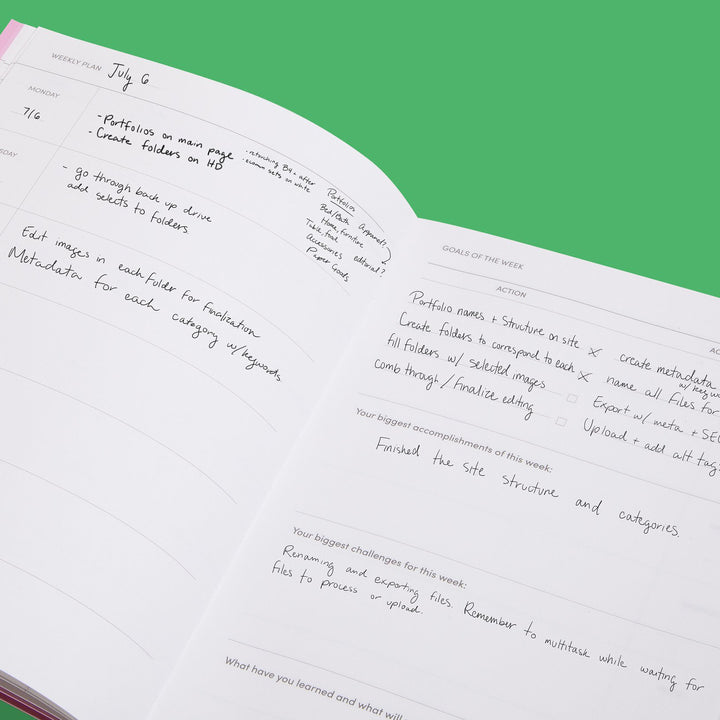 WEEKLY PLAN July 6
MONDAY
7/6
- Portfolios on main page
- Create folders on HD
• retouching B4 + after
• ecomm sets on white
SDAY
- go through back up drive
add selects to folders
Portfolios
Bed/Bath Apparel?
Home, furniture
Table, food
Accessories editorial?
Paper Goods
Edit images in each folder for finalization
Metadata for each category w/keywords
GOALS OF THE WEEK
ACTION
AC
Portfolio names + Structure on site X
Create folders to correspond to each X
fill folders w/ selected images
comb through/finalize editing
create metadata
w/ keyw
name all files for
Export w/ meta + SEO
Upload + add alt tag
Your biggest accomplishments of this week:
Finished the site structure and categories.
Your biggest challenges for this week:
Renaming and exporting files. Remember to multitask while waiting for
files to process or upload.
What have you learned and what will